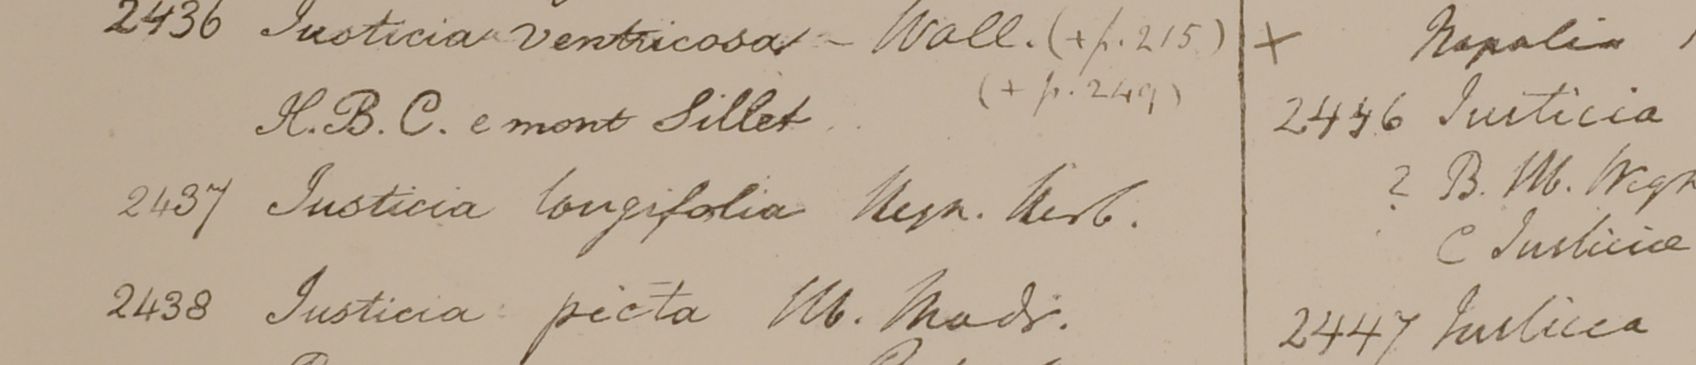 2436 Justicia ventricosa - Wall. (+ p. 215)
(+ p. 249)
H. B. C. e mont Sillet
2437 Justicia longifolia Heyn. Herb.
2438 Justicia picta Hb. Madr.
+ Napalia
2446 Justicia
? B. Hb.
C Justicia
2447 Justicia